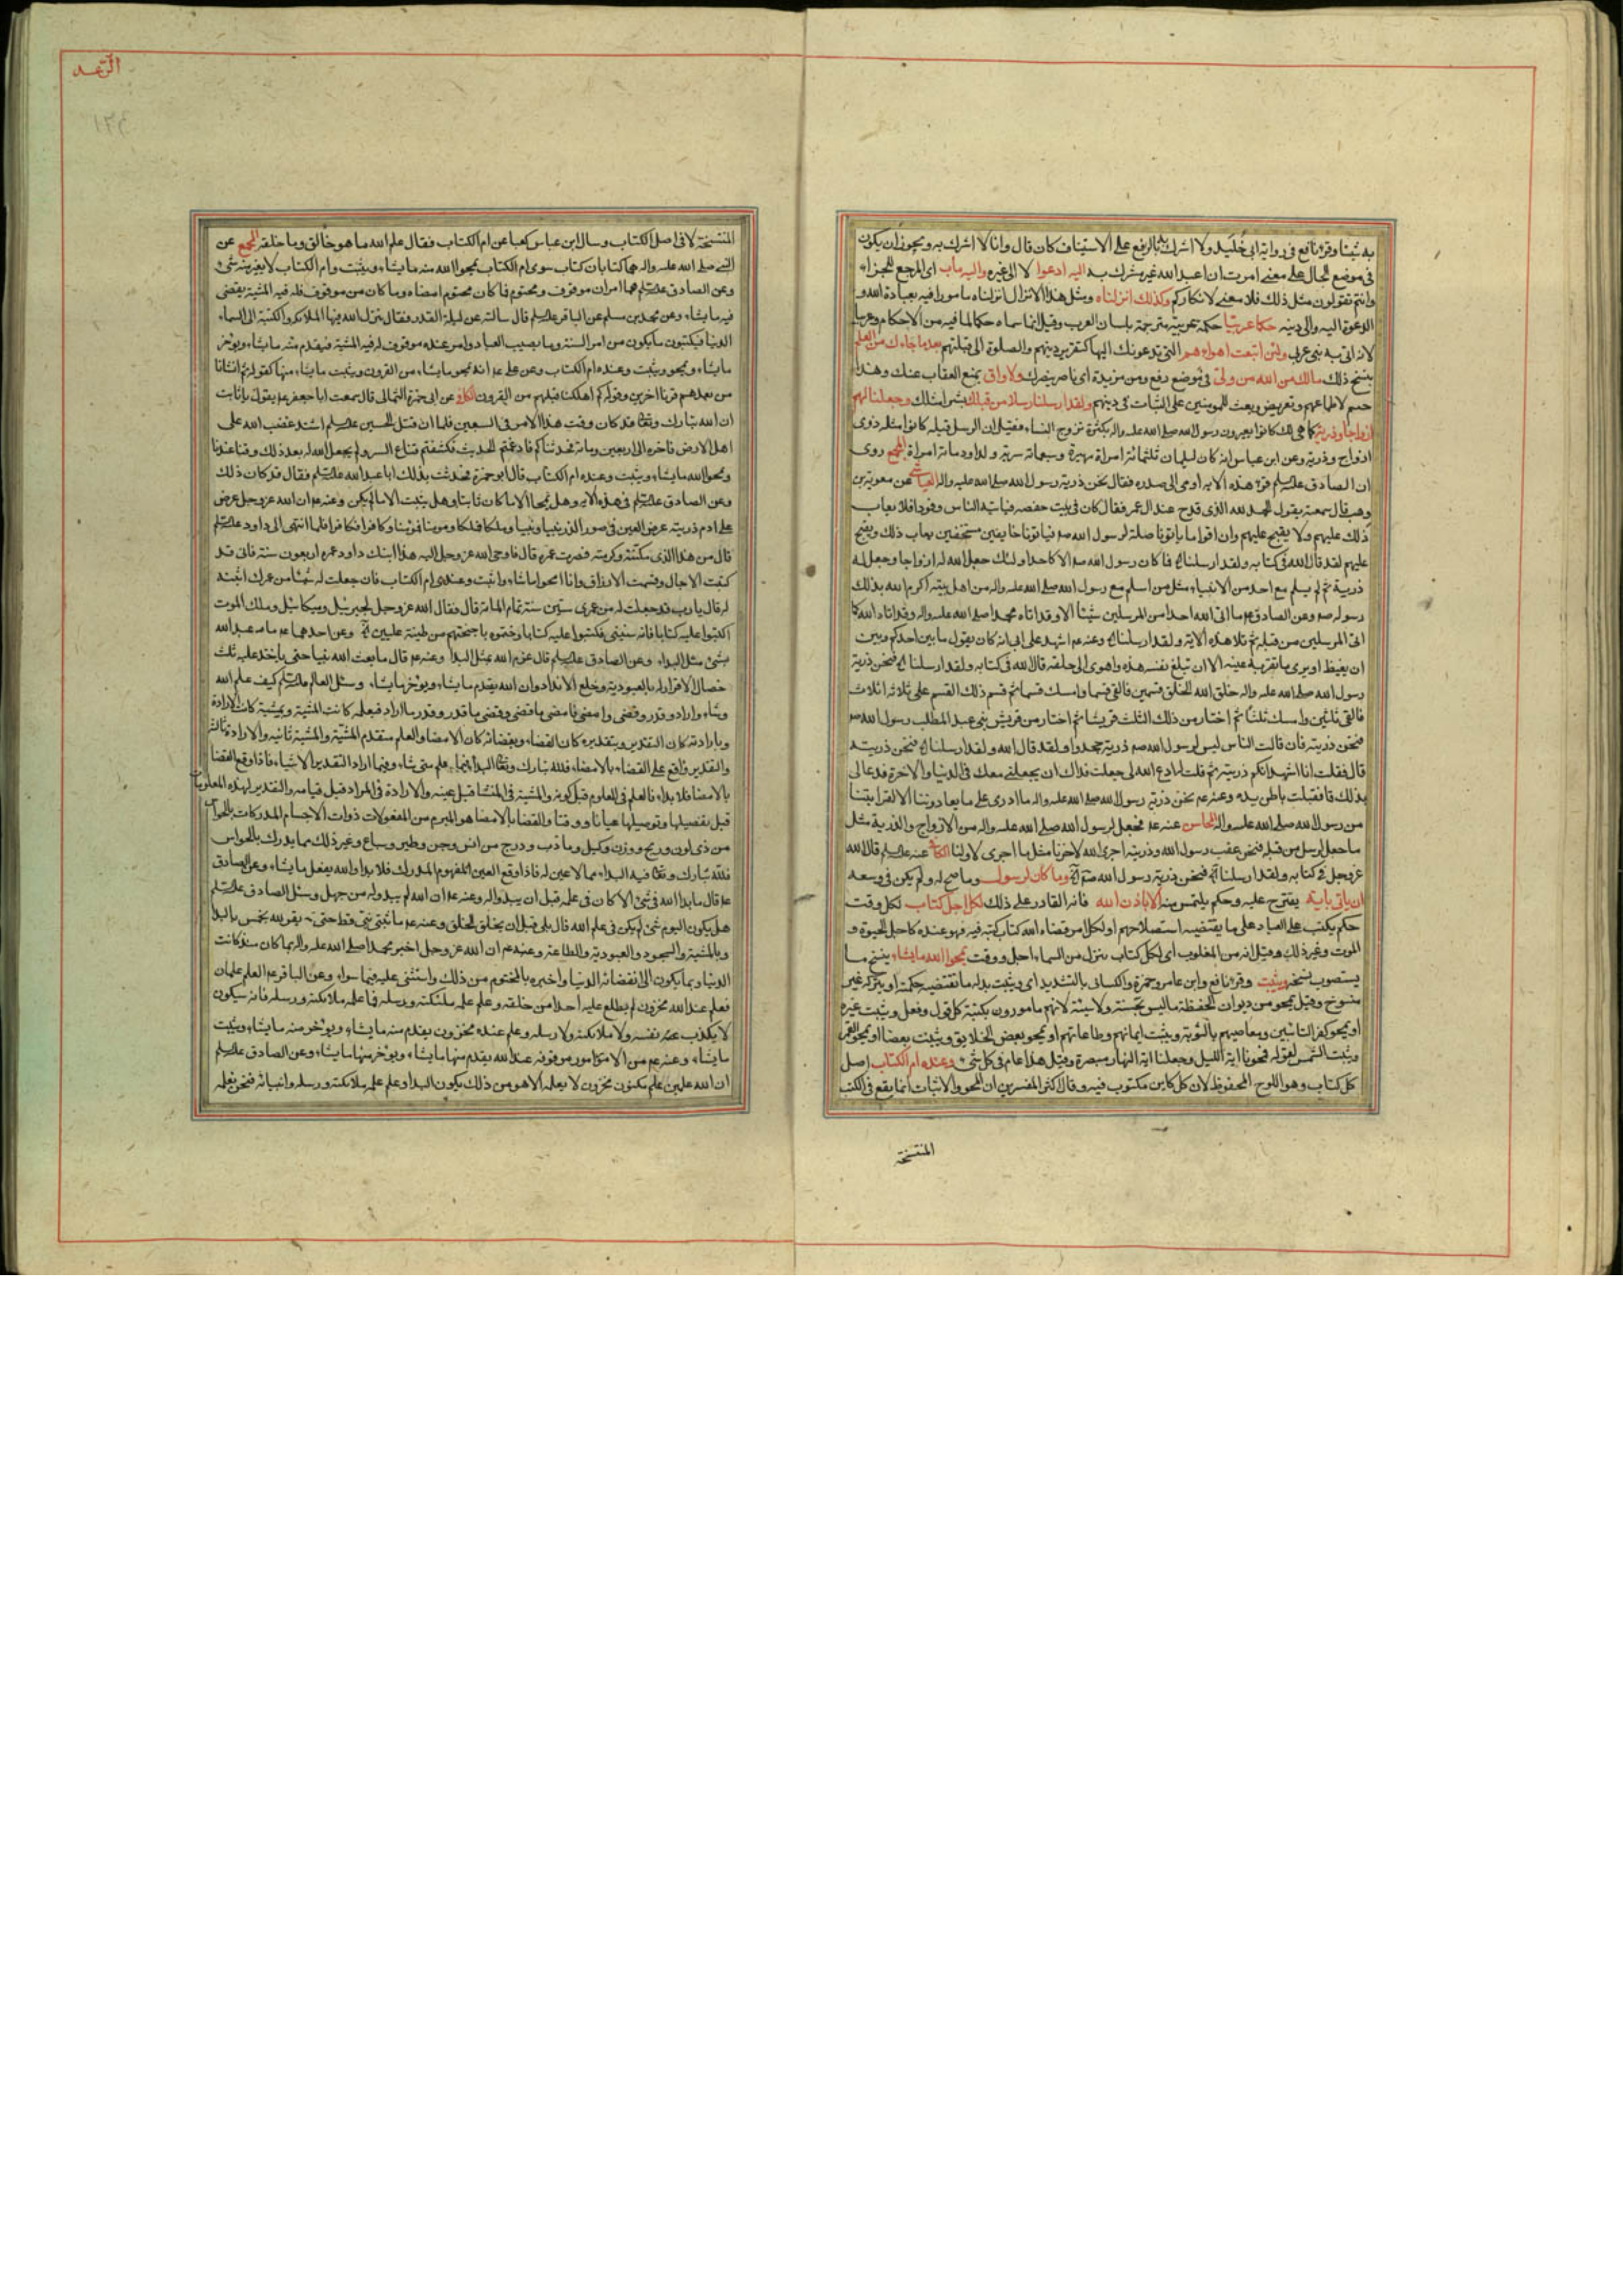 به شيئا وقرء نافع فى رواية ابى خليد ولا اشرك بالرفع على الاستيناف كان قال وانا لا اشرك به ويجوز ان يكون
فى موضع الحال على معنى امرت ان اعبد الله غير مشرك به اليه ادعوا لا الى غيره واليه ماب اى المرجع للجزاء
وانتم تقولون مثل ذلك فلا معنى لانكاركم وكذلك انزلناه ومثل هذا الانزال انزلناه مامورا فيه بعبادة الله و
الدعوة اليه والى دينه حكما عربيا حكمة عربية مترجمة بلسان العرب وقيل انما سماه حكما لما فيه من الاحكام وعربيا
لانه اتى به نبى عربى ولئن اتبعت اهواءهم التى يدعونك اليها كتقرير دينهم والصلوة الى قبلتهم بعد ما جاءك من العلم
بنسخ ذلك مالك من الله من ولى فى موضع رفع ومن مزيدة اى ناصر ينصرك ولا واق يمنع العقاب عنك وهذا
حسم لاطماعهم وتعريض وبعث للمومنين على الثبات فى دينهم ولقد ارسلنا رسلا من قبلك بشرا مثلك وجعلنا لهم
ازواجا وذرية كما هى لك كانوا يعيرون رسول الله صلى الله عليه واله بكثرة تزوج النساء فقيل ان الرسل قبله كانوا مثله ذوى
ازواج وذرية وعن ابن عباس انه كان لسليمان ثلثمائة امراة مهيرة وسبعمائة سرية ولداود مائة امراة المجمع روى
ان الصادق عليه السلم قرء هذه الاية اومى الى صدره فقال نحن ذرية رسول الله صلى الله عليه واله العياشى عن معوية بن
وهب قال سمعته يقول الحمد لله الذى قدح عند ال عمر فقال كان فى بيت حفصه فياتيه الناس وفودا فلا يعاب
ذلك عليهم ولا يقبح عليهم وان اقواما ياتونا صلة لرسول الله صم فياتونا خايفين مستخفين يعاب ذلك ويقبح
عليهم لقد قال الله فى كتابه ولقد ارسلنا فما كان رسول الله صم الا كاحد اولئك جعل الله له ازواجا وجعل له
ذرية ثم لم يسلم مع احد من الانبياء مثل من اسلم مع رسول الله صلى الله عليه واله من اهل بيته اكرم الله بذلك
رسوله صم وعن الصادق عم ما اتى الله احدا من المرسلين شيئا الا وقد اتاه محمدا صلى الله عليه واله وقد اتاه الله كما
اتى المرسلين من قبله ثم تلا هذه الاية ولقد ارسلنا وعنه عم اشهد على ابى انه كان يقول ما بين احدكم وبين
ان يغبط او يرى ما تقر به عينه الا ان تبلغ نفسه هذه واهوى الى حلقه قال الله فى كتابه ولقد ارسلنا فنحن ذرية
رسول الله صلى الله عليه واله خلق الله الخلق قسمين فالقى قسما وامسك قسما ثم قسم ذلك القسم على ثلاثة اثلاث
فالقى ثلثين وامسك ثلثا ثم اختار من ذلك الثلث قريشا ثم اختار من قريش بنى عبد المطلب رسول الله صم
فنحن ذريته فان قالت الناس ليس لرسول الله صم ذرية جحدوا ولقد قال الله ولقد ارسلنا فنحن ذريته
قال فقلت انا اشهد انكم ذريته ثم قلت له ادع الله لى جعلت فداك ان يجعلنى معك فى الدنيا والاخرة فدعا لى
بذلك قا فقبلت باطن يده وعنه عم نحن ذرية رسول الله صلى الله عليه واله ما ادرى على ما يعادوننا الا لقرابتنا
من رسول الله صلى الله عليه واله المحاسن عنه عم فجعل لرسول الله صلى الله عليه واله من الازواج والذرية مثل
ما جعل لرسل من قبله فنحن عقب رسول الله وذريته اجرى الله لاخرنا مثل ما اجرى لاولنا الكافى عنه عليه السلم قال الله
عز وجل فى كتابه ولقد ارسلنا فنحن ذرية رسول الله صم وما كان لرسول وما صح له ولم يكن فى وسعه
ان ياتى باية يقترح عليه وحكم يلتمس منه الا باذن الله فانه القادر على ذلك لكل اجل كتاب لكل وقت
حكم يكتب على العباد على ما يقتضيه استصلاحهم او لكل امر قضاه الله كتاب كتبه فيه فهو عنده كاجل الحيوة و
الموت وغير ذلك وقيل انه من المقلوب اى لكل كتاب ينزل من السماء اجل ووقت يمحوا الله ما يشاء ينسخ ما
يستصوب نسخه ويثبت وقرء نافع وابن عامر وحمزة والكسائى بالتشديد اى ويثبت بدله ما تقتضيه حكمته او يتركه غير
منسوخ وقيل يمحو من ديوان الحفظة ما ليس بحسنة ولا سيئة لانهم مامورون بكتبة كل قول وفعل ويثبت غيره
او يمحو كفر التائبين ومعاصيهم بالتوبة ويثبت ايمانهم وطاعاتهم او يمحو بعض الخلايق ويثبت بعضا او يمحو القمر
ويثبت الشمس لقوله فمحونا اية الليل وجعلنا اية النهار مبصرة وقيل هذا عام فى كل شئ وعنده ام الكتاب اصل
كل كتاب وهو اللوح المحفوظ لان كل كاين مكتوب فيه وقال اكثر المفسرين ان المحو والاثبات انما يقع فى الكتب
المنتسخة
الرعد
المنتسخة لا فى اصل الكتاب وسال ابن عباس كعبا عن ام الكتاب فقال علم الله ما هو خالق وما خلقه المجمع عن
النبى صلى الله عليه واله هما كتابان كتاب سوى ام الكتاب يمحوا الله منه ما يشاء ويثبت وام الكتاب لا يغير منه شئ
وعن الصادق عليه السلم هما امران موقوف ومحتوم فما كان محتوم امضاه وما كان من موقوف فله فيه المشية يقضى
فيه ما يشاء وعن محمد بن مسلم عن الباقر عليه السلم قال سالته عن ليلة القدر فقال ينزل الله فيها الملائكة والكتبة الى السماء
الدنيا فيكتبون ما يكون من امر السنة وما يصيب العباد وامر عنده موقوف له فيه المشية فيقدم منه ما يشاء ويوخر
ما يشاء ويمحو ويثبت وعنده ام الكتاب وعن على عم انه يمحو ما يشاء من القرون ويثبت ما يشاء منها كقوله ثم انشانا
من بعدهم قرنا اخرين وقوله كم اهلكنا قبلهم من القرون الكافى عن ابى حمزة الثمالى قال سمعت ابا جعفر عم يقول يا ثابت
ان الله تبارك وتعا قد كان وقت هذا الامر فى السبعين فلما ان قتل الحسين عليه السلم اشتد غضب الله على
اهل الارض فاخره الى اربعين ومائة فحدثناكم فاذعتم الحديث فكشفتم قناع السر ولم يجعل الله له بعد ذلك وقتا عندنا
ويمحوا الله ما يشاء ويثبت وعنده ام الكتاب قال ابو حمزة فحدثت بذلك ابا عبد الله عليه السلم فقال قد كان ذلك
وعن الصادق عليه السلم فى هذه الاية وهل يمحا الا ما كان ثابتا وهل يثبت الا ما لم يكن وعنه عم ان الله عز وجل عرض
على ادم ذريته عرض العين فى صور الذر نبيا ونبيا وملكا فملكا ومومنا فمومنا وكافرا فكافرا فلما انتهى الى داود عليه السلم
قال من هذا الذى وكرمته فصرت عمره قال فاوحى الله عز وجل اليه هذا ابنك داود عمره اربعون سنة فانى قد
كتبت الاجال وقسمت الارزاق وانا امحو ما اشاء واثبت وعندى ام الكتاب فان جعلت له شيئا من عمرك اثبته
له قال يا رب قد جعلت له من عمرى ستين سنة تمام المائة قال فقال الله عز وجل لجبرئيل وميكائيل وملك الموت
اكتبوا عليه كتابا فانه سينسى فكتبوا عليه كتابا وختموه باجنحتهم من طينة عليين وعن احدهما عم ما عبد الله
بشئ مثل البداء وعن الصادق عليه السلم قال عزم الله بمثل البدا وعنه عم قال ما بعث الله نبيا حتى ياخذ عليه ثلث
خصال الاقرار له بالعبودية وخلع الانداد وان الله يقدم ما يشاء ويوخر ما يشاء وسئل العالم عليه السلم كيف علم الله
وشاء واراد وقدر وقضى وامضى فامضى ما قضى وقضى ما قدر وقدر ما اراد فبعلمه كانت المشية وبمشيته كانت الارادة
وبارادته كان التقدير وبتقديره كان القضاء وبقضائه كان الامضا والعلم متقدم المشية والمشية ثانيه والارادة ثالثة
والتقدير واقع على القضاء بالامضاء فلله تبارك وتعا البدا فيما علم متى شاء وفيما اراد التقدير الاشياء فاذا وقع القضا
بالامضا فلا بداء فالعلم فى المعلوم قبل كونه والمشية فى المنشا قبل عينه والارادة فى المراد قبل قيامه والتقدير لهذه المعلومات
قبل تفصيلها وتوصيلها عيانا ووقتا والقضا بالامضا هو المبرم من المفعولات ذوات الاجسام المدركات بالحواس
من ذى لون وريح ووزن وكيل وما دب ودرج من انس وجن وطير وسباع وغير ذلك مما يدرك بالحواس
فلله تبارك وتعا فيه البداء مما لا عين له فاذا وقع العين المفهوم المدرك فلا بدا والله يفعل ما يشاء وعن الصادق
عم قال ما بدا الله فى شئ الا كان فى علمه قبل ان يبدو له وعنه عم ان الله لم يبدو له من جهل وسئل الصادق عليه السلم
هل يكون اليوم شئ لم يكن فى علم الله قال بلى قبل ان يخلق الخلق وعنه عم ما تنبى نبى قط حتى يقر لله بخمس بالبدا
وبالمشية والسجود والعبودية والطاعة وعنه عم ان الله عز وجل اخبر محمدا صلى الله عليه واله بما كان منذ كانت
الدنيا وبما يكون الى انقضائه الدنيا واخبره بالمحتوم من ذلك واستثنى عليه فيما سواه وعن الباقر عم العلم علمان
فعلم عند الله مخزون لم يطلع عليه احدا من خلقه وعلم علمه ملئكته ورسله فما علمه ملائكته ورسله فانه سيكون
لا يكذب نفسه ولا ملائكته ولا رسله وعلم عنده مخزون يقدم منه ما يشاء ويوخر منه ما يشاء ويثبت
ما يشاء وعنه عم من الامور امور موقوفة عند الله يقدم منها ما يشاء ويوخر منها ما يشاء وعن الصادق عليه السلم
ان الله علمين علم مكنون مخزون لا يعلمه الا هو من ذلك يكون البدا وعلم علمه ملائكته ورسله وانبيائه فنحن نعلمه